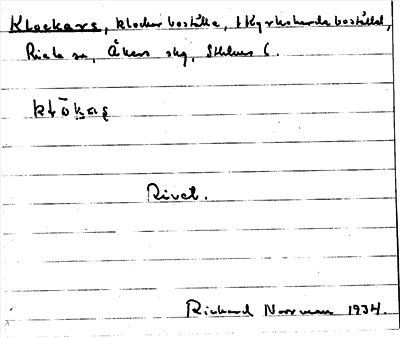 Klockars, klockarboställe, f kyrkoherdeboställe,
Riala sn, Åkers skg, Sthlms l.
Rivet.
Richard Norrman 1934.